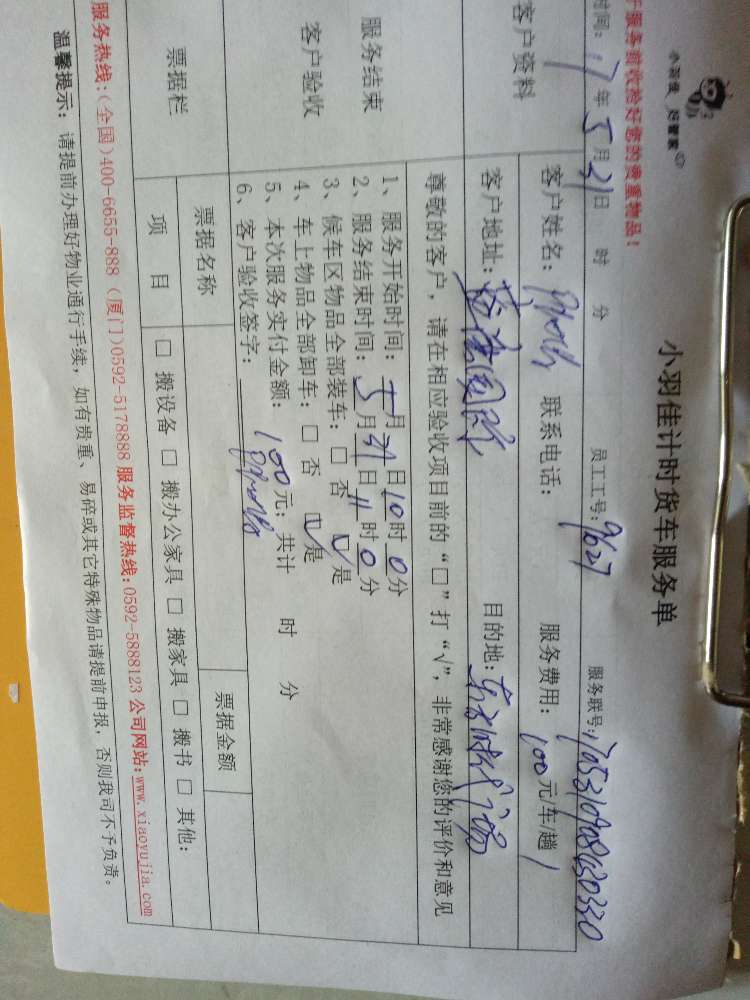 小羽佳 好管家
于服务前收拾好您的贵重物品！
小羽佳计时货车服务单
时间：17年5月31日 时 分 员工工号：9627 服务联号：
客户资料
客户姓名： 联系电话： 服务费用：100元/车/趟
客户地址： 目的地：
尊敬的客户，请在相应验收项目前的“□”打“√”，非常感谢您的评价和意见
服务结束
客户验收
1、服务开始时间：5月 日10时0分
2、服务结束时间：5月31日11时0分
3、候车区物品全部装车：□否 ☑是
4、车上物品全部卸车：□否 ☑是
5、本次服务实付金额：100元；共计 时 分
6、客户验收签字：
票据栏
票据名称 票据金额
项 目 □ 搬设备 □ 搬办公家具 □ 搬家具 □ 搬书 □ 其他：
服务热线：(全国)400-6655-888 (厦门)0592-5178888 服务监督热线：0592-5888123 公司网站：www.xiaoyujia.com
温馨提示：请提前办理好物业通行手续，如有贵重、易碎或其它特殊物品请提前申报，否则我司不予负责。